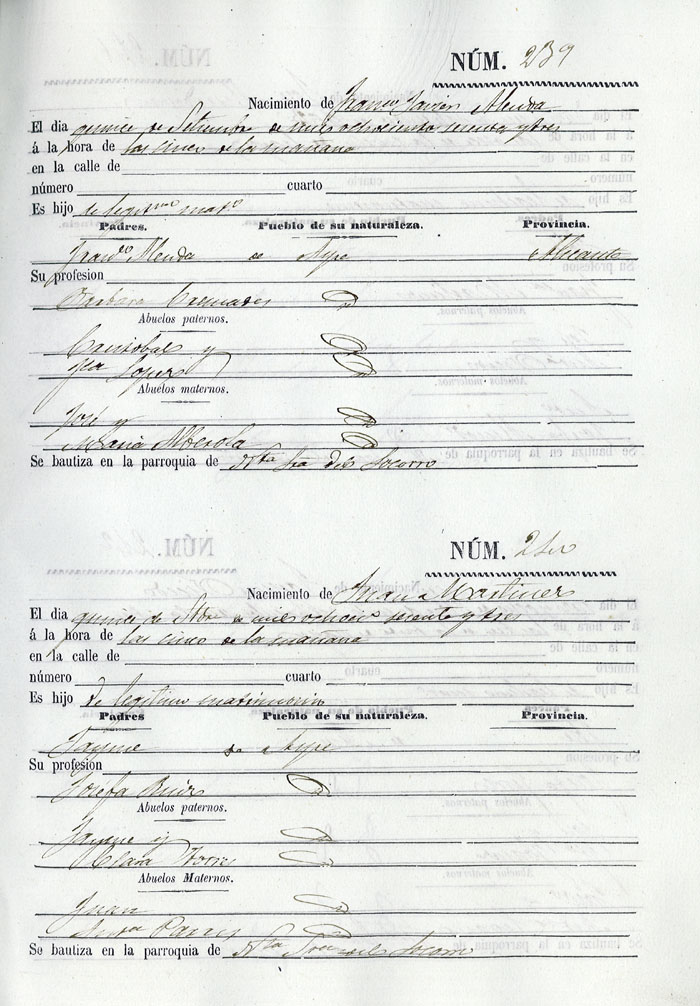 NÚM. 239
Nacimiento de Franco Javier Alenda
El dia quince de Setiembre de mil ochocientos sesenta y tres
á la hora de las cinco de la mañana
en la calle de
número cuarto
Es hijo de legitmo matº
Padres. Pueblo de su naturaleza. Provincia.
Franco Alenda de Aspe Alicante
Su profesion
Barbara Cremades
Abuelos paternos.
Cristobal y
Fca Lopez
Abuelos maternos.
José y
Maria Alberola
Se bautiza en la parroquia de Ntra Sra del Socorro
NÚM. 240
Nacimiento de Juan Martinez
El dia quince de Sbre de mil ochocs sesenta y tres
á la hora de las cinco de la mañana
en la calle de
número cuarto
Es hijo de legitimo matrimonio
Padres Pueblo de su naturaleza. Provincia.
Jayme de Aspe
Su profesion
Josefa Ruiz
Abuelos paternos.
Jayme y
Abuelos Maternos.
Juan
Se bautiza en la parroquia de Ntra Sra del Socorro